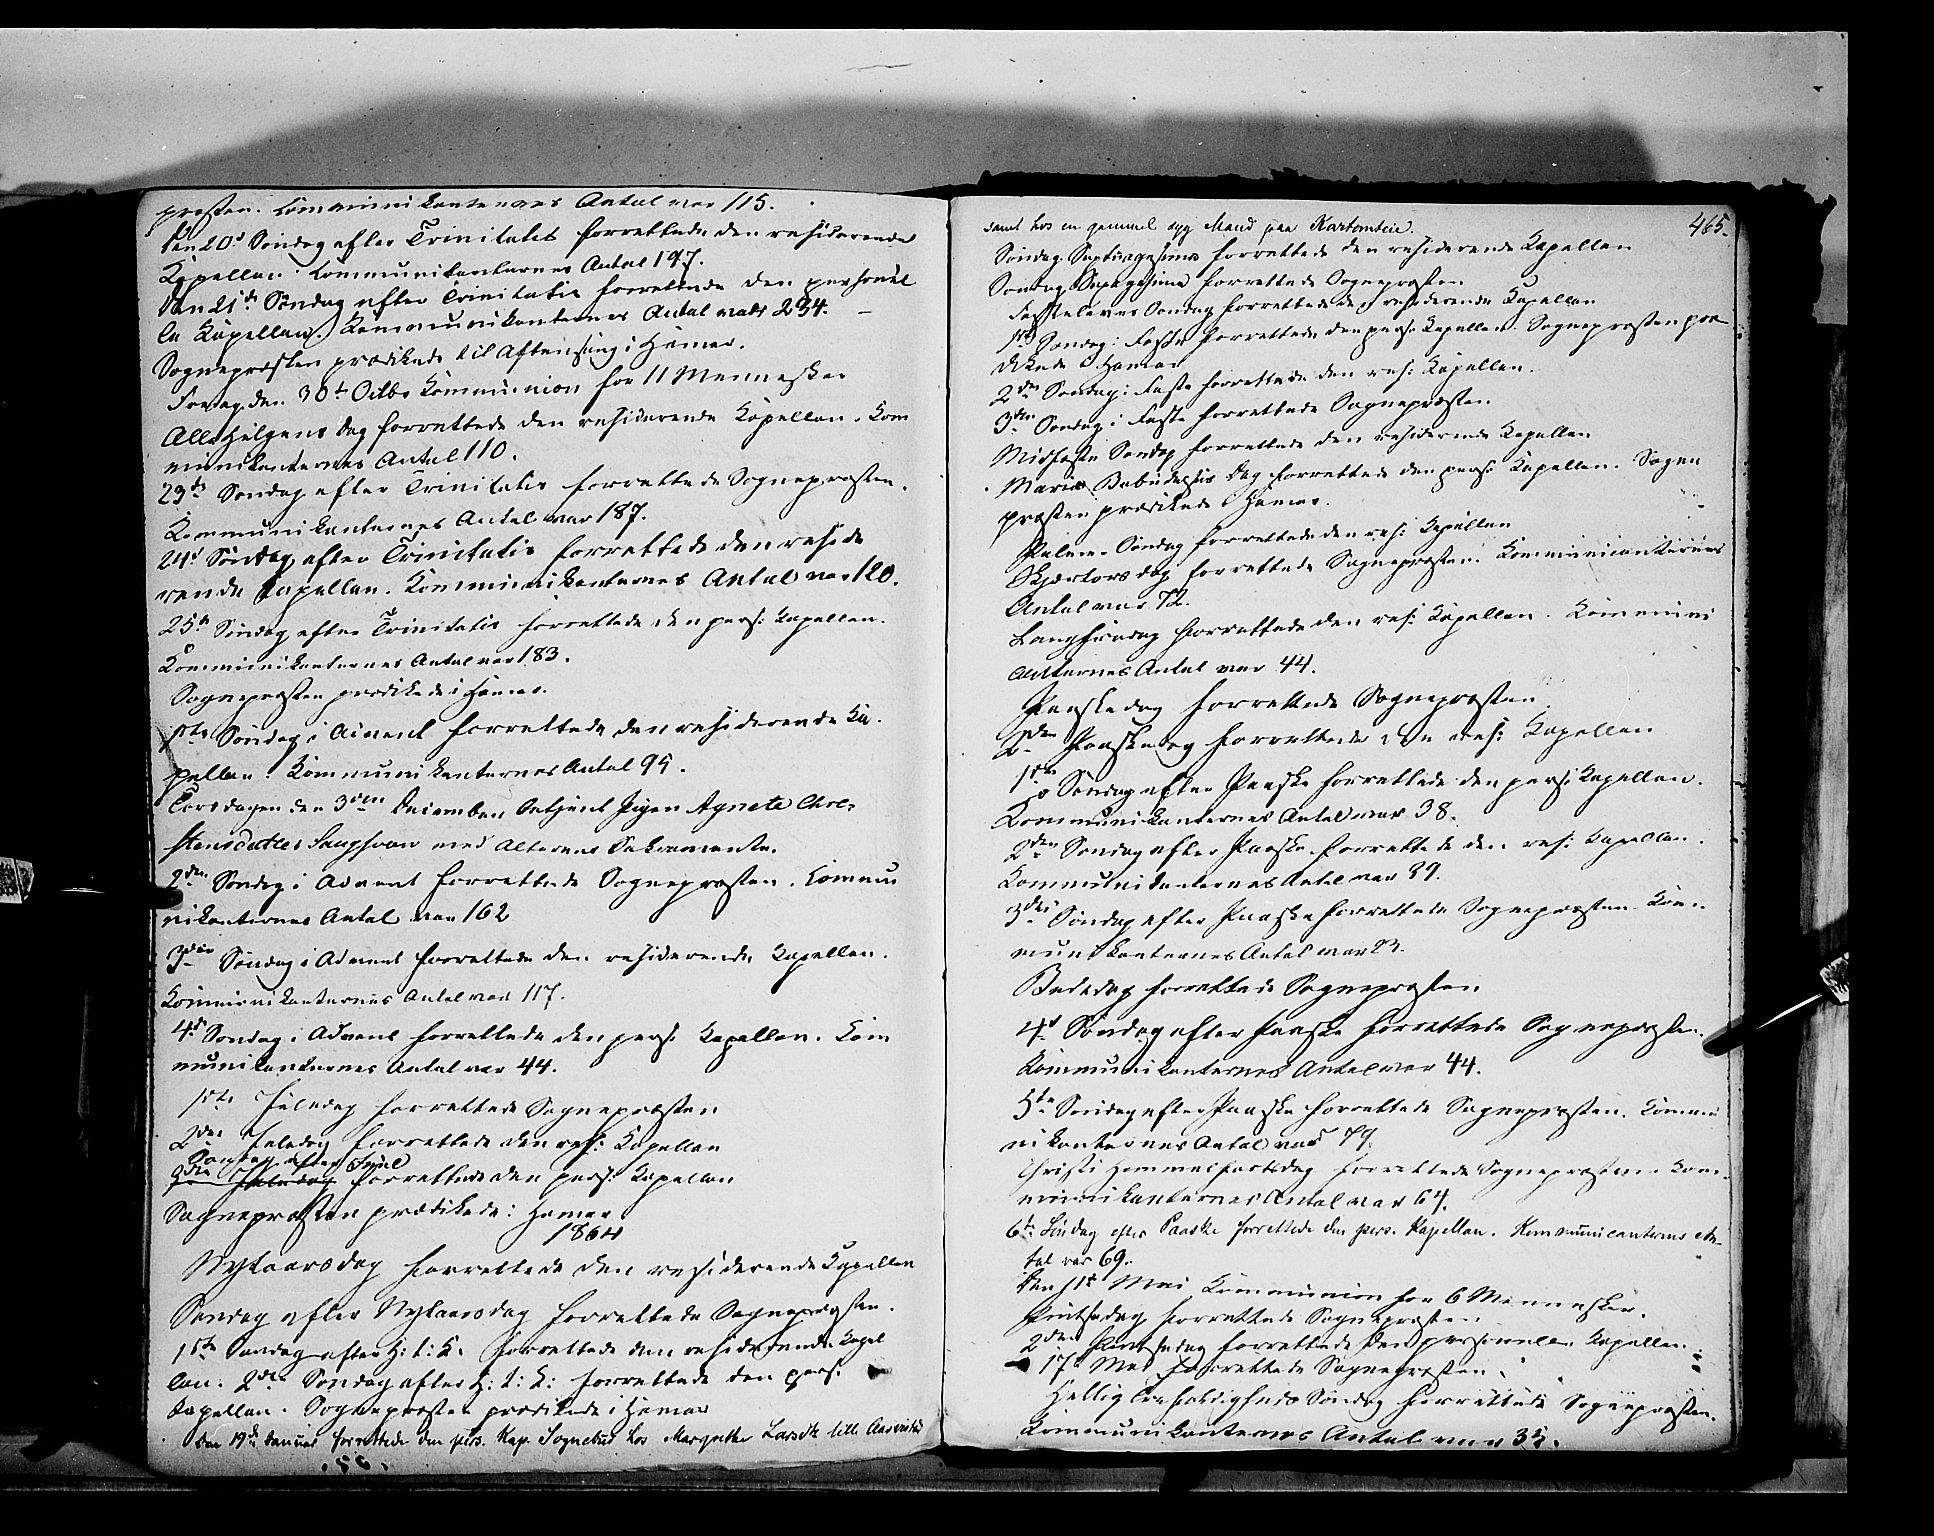 præsten. Kommunikanternes Antal var 115.
Den 20de Søndag efter Trinitatis forrettede den residerende
Kapellan. Kommunikanternes Antal 197.
Den 21de Søndag efter Trinitatis forrettede den personel
le Kapellan. Kommunikanternes Antal var 234.
Sognepræsten prædikede til Aftensang i Hamar.
Fredag den 30te Octbr Kommunion for 11 Mennesker
Alle Helgens Dag forrettede den residerende Kapellan. Kom
munikanternes Antal 110.
23de Søndag efter Trinitatis forrettede Sognepræsten.
Kommunikanternes Antal var 187.
24d Søndag efter Trinitatis forrettede den reside
rende Kapellan. Kommunikanternes Antal var 120.
25de Søndag efter Trinitatis forrettede den pers: Kapellan.
Kommunikanternes Antal var 183.
Sognepræsten prædikede i Hamar.
1ste Søndag i Advent forrettede den residerende Ka-
pellan. Kommunikanternes Antal 95.
Torsdagen den 3den December betjent Pigen Agnete Chri-
stensdatter med Alterens Sakramente.
2den Søndag i Advent forrettede Sognepræsten. Kommu
nikanternes Antal var 162
3die Søndag i Advent forrettede den residerende Kapellan.
Kommunikanternes Antal var 117.
4d Søndag i Advent forrettede den pers: Kapellan. Kom
munikanternes Antal var 44.
1ste Juledag forrettede Sognepræsten
2den Juledag forrettede den res: Kapellan
Søndag efter Juul
3die Juledag forrettede den pers: Kapellan
Sognepræsten prædikede i Hamar
1864
Nytaarsdag forrettede den residerende Kapellan
Søndag efter Nytaarsdag forrettede Sognepræsten.
1ste Søndag efter H: t: K: forrettede den residerende Kapel
lan. 2den Søndag efter H: t: K: forrettede den pers:
Kapellan. Sognepræsten prædikede i Hamar
den 19de Januar forrettede den pers. Kap. Sognebud hos Margrethe Larsdtr lille
465.
samt hos en gammel syg Mand paa
Søndag Septuagesima forrettede den residerende Kapellan
Søndag Sexagesima forrettede Sognepræsten
Fastelavns Søndag forrettede d. residerende Kapellan
1ste Søndag i Faste forrettede den pers: Kapellan. Sognepræsten præ
dikede i Hamar
2den Søndag i Faste forrettede den res: Kapellan.
3den Søndag i Faste forrettede Sognepræsten.
Midfaste Søndag forrettede den residerende Kapellan
Mariæ Bebudelses Dag forrettede den pers: Kapellan. Sogne
præsten prædikede i Hamar.
Palme-Søndag forrettede den res: Kapellan
Skjærtorsdag forrettede Sognepræsten. Kommunicanternes
Antal var 72.
Langfredag forrettede den res: Kapellan. Kommuni
canternes Antal var 44.
Paaskedag forrettede Sognepræsten
2den Paaskedag forrettede den res: Kapellan
1ste Søndag efter Paaske forrettede den pers: Kapellan.
Kommunikanternes Antal var 38.
2den Søndag efter Paaske forrettede den res: Kapellan.
Kommunikanternes Antal var 89.
3die Søndag efter Paaske forrettede Sognepræsten. Kom-
munikanternes Antal var
Bededag forrettede Sognepræsten.
4d Søndag efter Paaske forrettede Sognepræsten.
Kommunikanternes Antal var 44.
5te Søndag efter Paaske forrettede Sognepræsten. Kommu
nikanternes Antal var 79.
Christi Himmelfartsdag forrettede Sognepræsten. Kom-
munikanternes Antal var 64.
6te Søndag efter Paaske forrettede den pers. Kapellan. Kommunicanternes An-
tal var 69.
Den 11te Mai Kommunion for 6 Mennesker.
Pintsedag forrettede Sognepræsten.
2den Pintsedag forrettede den personelle Kapellan.
17de Mai forrettede Sognepræsten.
Hellig Trefoldigheds Søndag forrettede Sognepræsten.
Kommunikanternes Antal var 35.